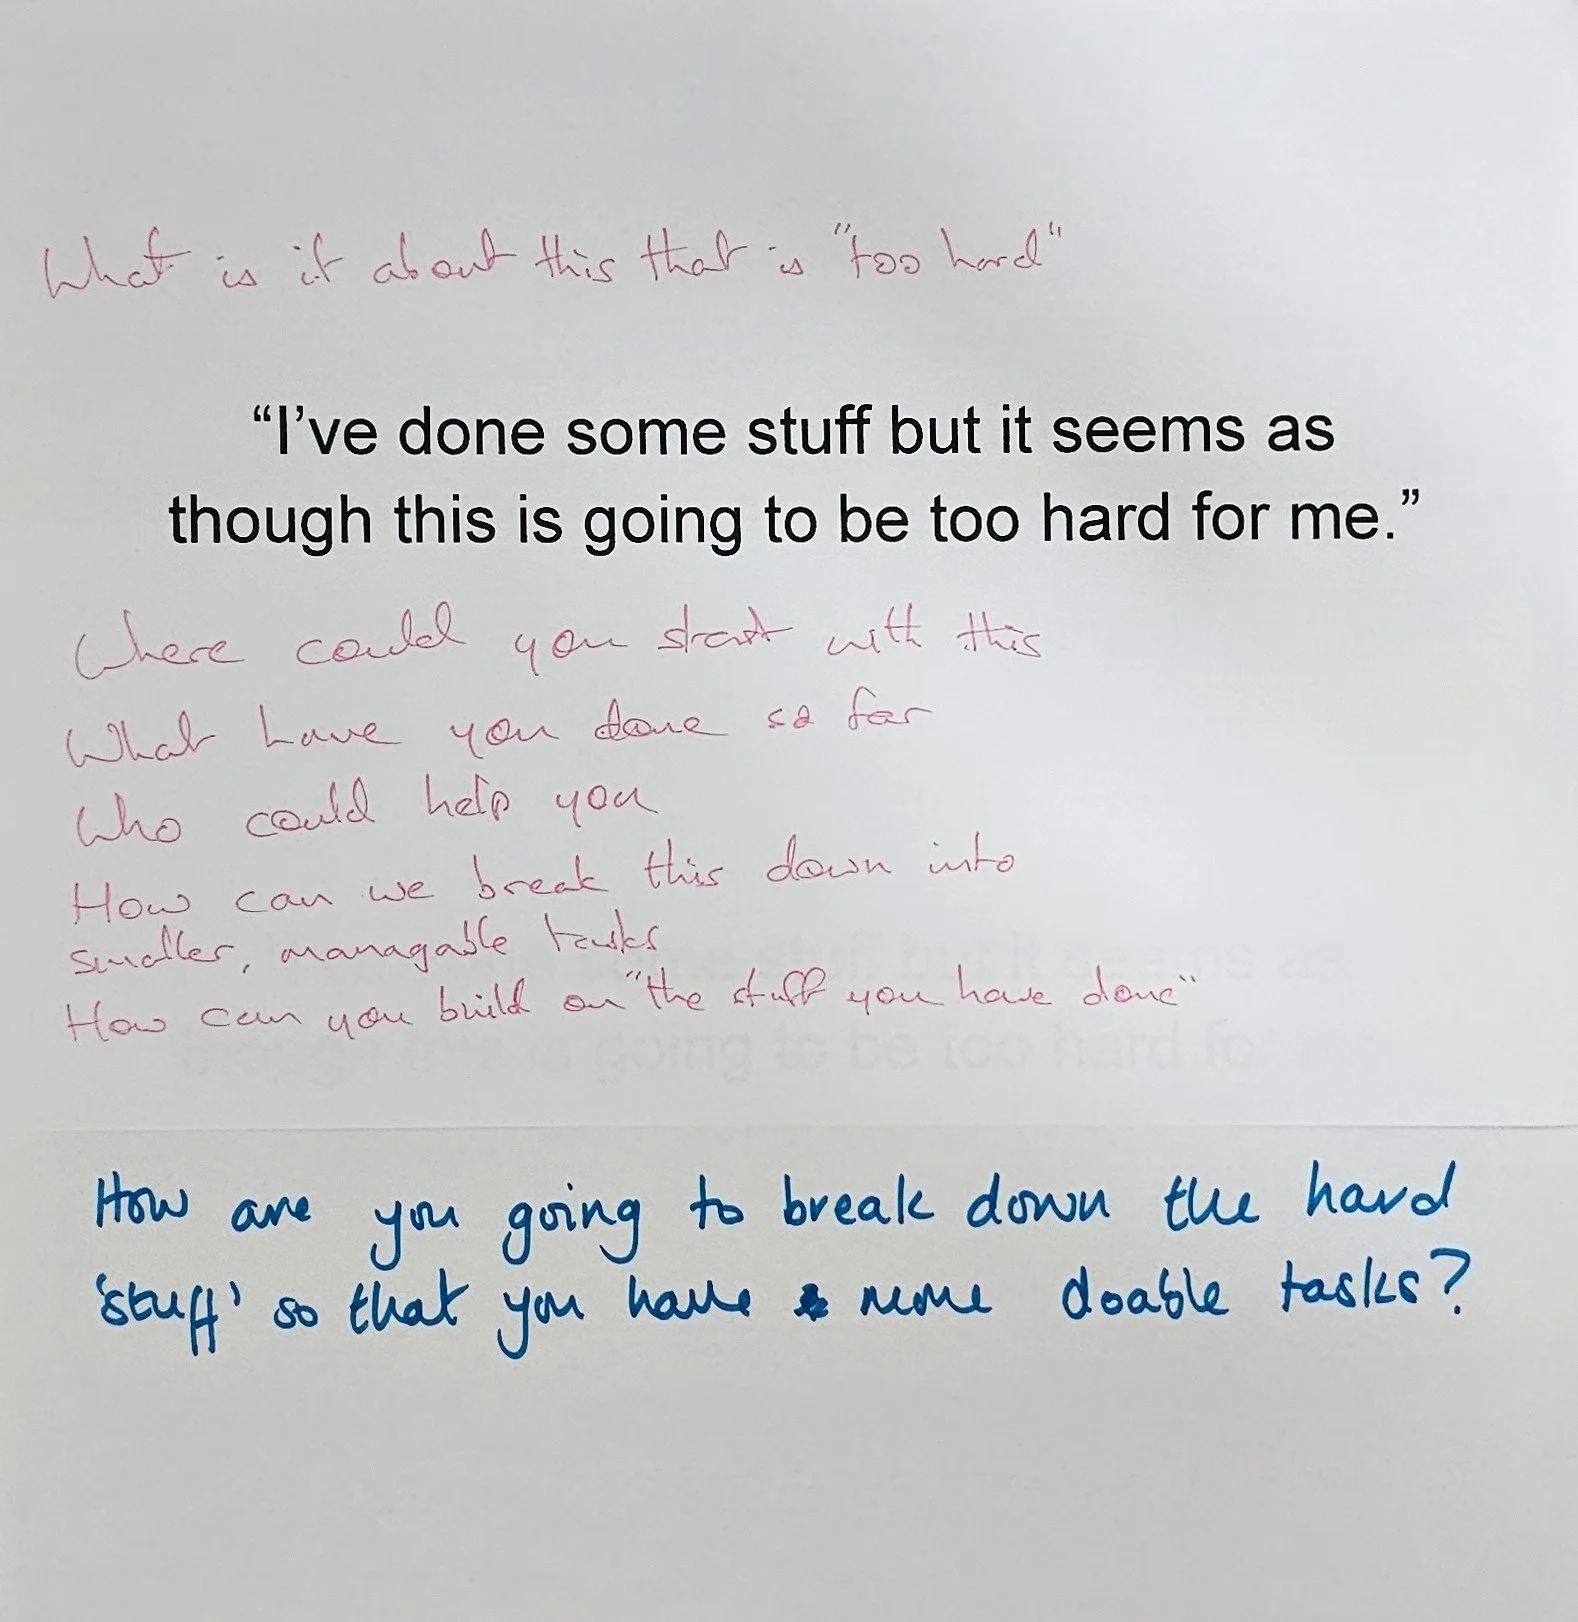 What is it about this that is "too hard"
“I’ve done some stuff but it seems as
though this is going to be too hard for me.”
Where could you start with this
What have you done so far
Who could help you
How can we break this down into
smaller, managable tasks
How can you build on "the stuff you have done"
How are you going to break down the hard
'stuff' so that you have more doable tasks?